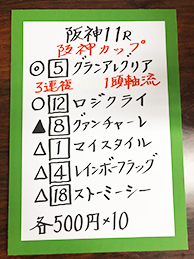 阪神11R
阪神カップ
◎5 グランアレグリア
3連複 1頭軸流
○12 ロジクライ
▲8 グァンチャーレ
△1 マイスタイル
△4 レインボーフラッグ
△18 ストーミーシー
各500円×10